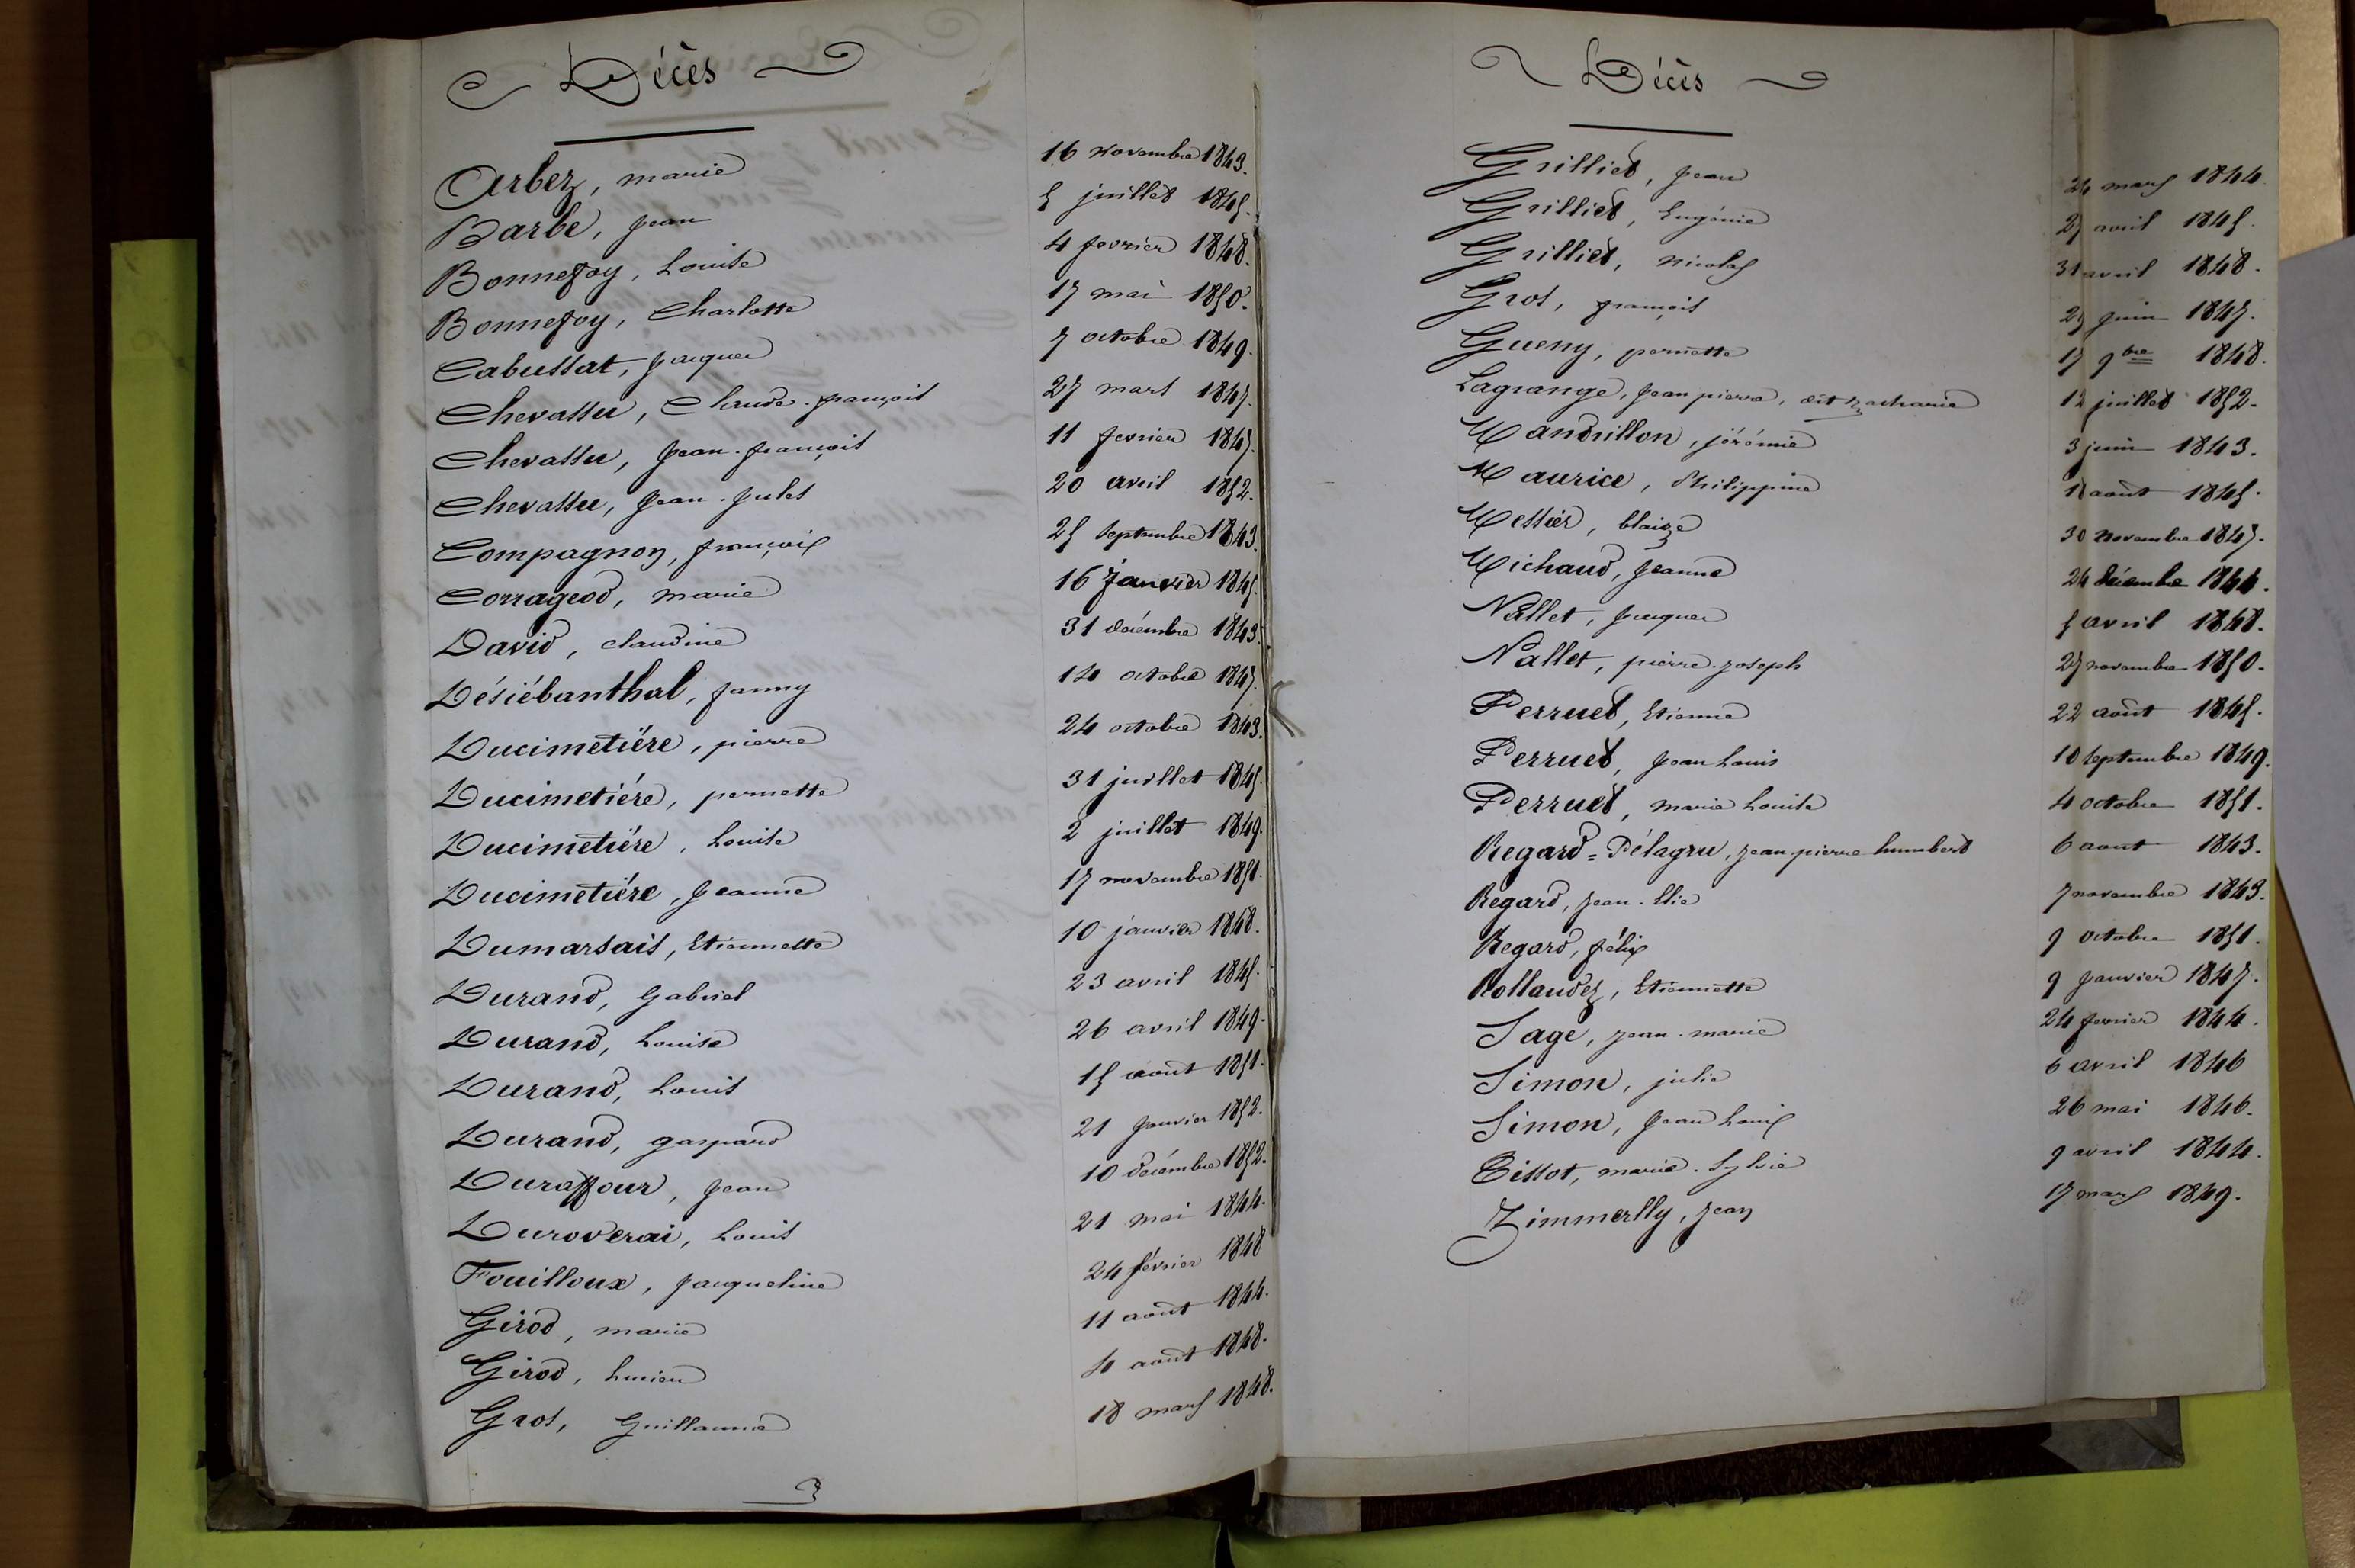 Décès
Arbez, marie 16 novembre 1843.
Barbe, Jean 5 juillet 1845.
Bonnefoy, Louise 4 fevrier 1848.
Bonnefoy, Charlotte 17 mai 1850.
Cabussat, Jacques 7 octobre 1849.
Chevassu, Claude-françois 27 mars 1847.
Chevassu, Jean-françois 11 fevrier 1847.
Chevassu, Jean-Jules 20 avril 1852.
Compagnon, françois 25 septembre 1843.
Corrageod, marie 16 janvier 1845.
David, claudine 31 décembre 1843.
Désiébanthal, fanny 14 octobre 1847.
Ducimetiére, pierre 24 octobre 1843.
Ducimetiére, pernette 31 juillet 1845.
Ducimetiére, Louise 2 juillet 1849.
Ducimetiére, Jeanne 17 novembre 1851.
Dumarsais, Etiennette 10 janvier 1848.
Durand, Gabriel 23 avril 1845.
Durand, Louise 26 avril 1849.
Durand, Louis 15 août 1851.
Durand, gaspard 21 Janvier 1852.
Duraffour, Jean 10 décembre 1852.
Duroverai, Louis 21 mai 1844.
Fouilloux, Jacqueline 24 février 1848
Girod, marie 11 août 1844.
Girod, Lucien 4 août 1848.
Gros, Guillaume 18 mars 1848.
Décès
Grilliet, Jean 24 mars 1844
Grilliet, Eugénie 27 avril 1845.
Grilliet, Nicolas 31 avril 1848.
Gros, françois 29 juin 1847.
Gueny, pernette 17 9bre 1848.
Lagrange, Jean pierre, dit Zacharie 12 juillet 1852.
Mandrillon, jérémie 3 juin 1843.
Maurice, Philippine août 1845.
Messier, blaize 30 novembre 1847.
Michaud, Jeanne 24 décembre 1844.
Nallet, Jacques 5 avril 1848.
Nallet, pierre-Joseph 27 novembre 1850.
Perruet, Etienne 22 août 1845.
Perruet, Jean Louis 10 septembre 1849.
Perruet, marie Louise 4 octobre 1851.
Regard=Pélagru, Jean-pierre humbert 6 aout 1843.
Regard, Jean-Elie 7 novembre 1843.
Regard, félix 9 octobre 1851.
Rollandez, Etiennette 9 Janvier 1847.
Sage, Jean-marie 24 fevrier 1844.
Simon, julie 6 avril 1846
Simon, Jean Louis 26 mai 1846.
Tissot, marie-Sylvie 9 avril 1844.
Zimmerlly, Jean 17 mars 1849.